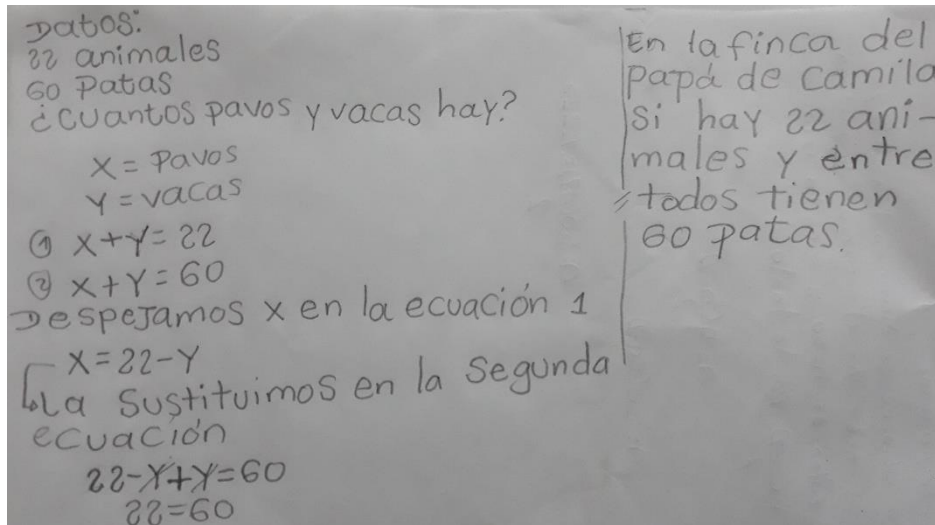 Datos:
22 animales
60 Patas
¿cuantos pavos y vacas hay?
X = Pavos
Y = vacas
① X+Y=22
② X+Y=60
Despejamos x en la ecuación 1
X=22-Y
La sustituimos en la segunda
ecuación
22-Y+Y=60
22=60
En la finca del
papá de camila
si hay 22 ani-
males y entre
todos tienen
60 patas.